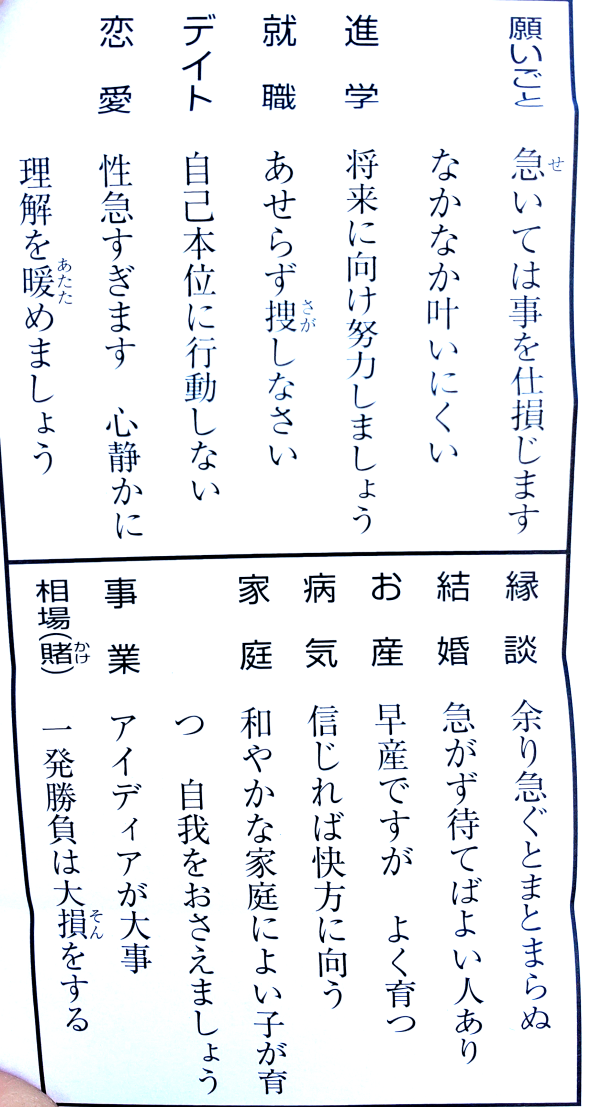 願いごと 急いては事を仕損じます
せ
なかなか叶いにくい
進学 将来に向け努力しましょう
就職 あせらず捜しなさい
さが
デイト 自己本位に行動しない
恋愛 性急すぎます 心静かに
理解を暖めましょう
あたた
縁談 余り急ぐとまとまらぬ
結婚 急がず待てばよい人あり
お産 早産ですが よく育つ
病気 信じれば快方に向う
家庭 和やかな家庭によい子が育
つ 自我をおさえましょう
事業 アイディアが大事
相場(賭) 一発勝負は大損をする
かけ
そん